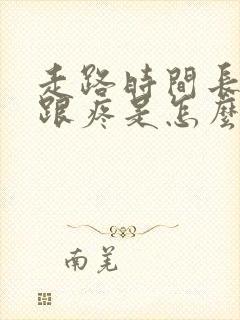 走路時間長
跟疼是怎麼
南羌